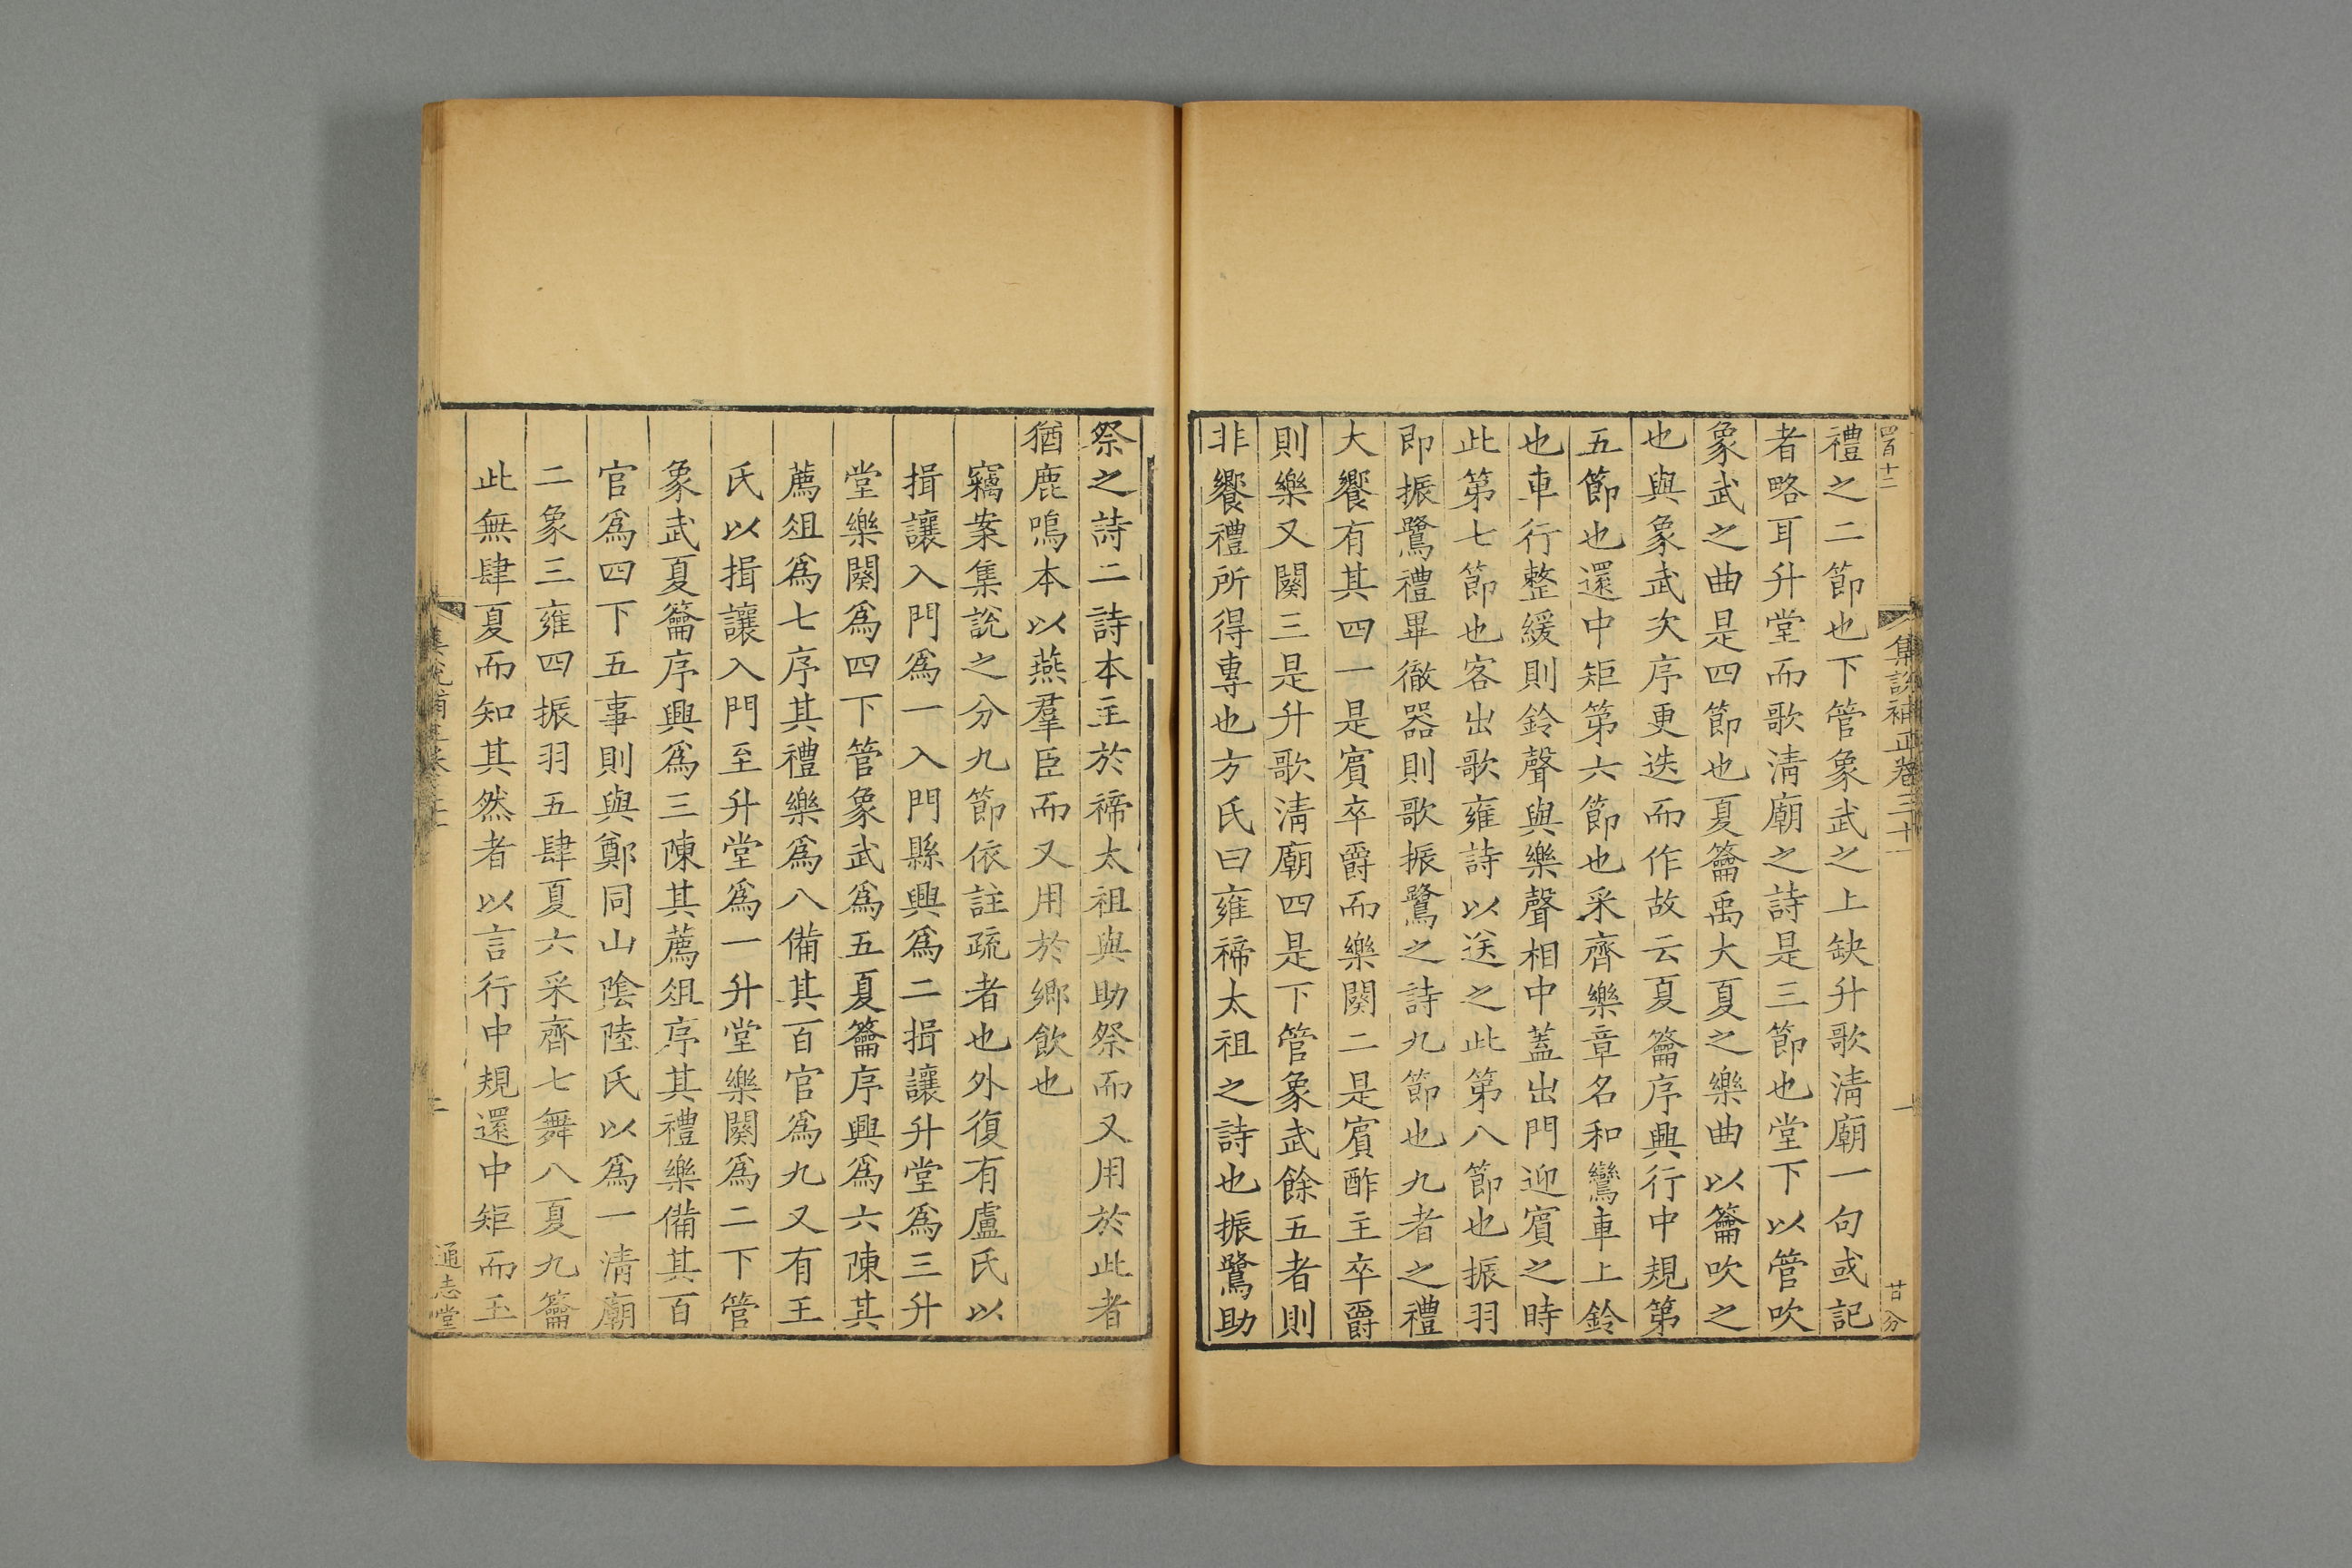 四百十二
集説補正卷三十一
一
廿分
禮之二節也下管象武之上缺升歌淸廟一句或記
者略耳升堂而歌淸廟之詩是三節也堂下以管吹
象武之曲是四節也夏籥禹大夏之樂曲以籥吹之
也與象武次序更迭而作故云夏籥序興行中規第
五節也還中矩第六節也采齊樂章名和鸞車上鈴
也車行整緩則鈴聲與樂聲相中蓋出門迎賔之時
此第七節也客出歌雍詩以送之此第八節也振羽
即振鷺禮畢徹器則歌振鷺之詩九節也九者之禮
大饗有其四一是賔卒爵而樂闋二是賔酢主卒爵
則樂又闋三是升歌淸廟四是下管象武餘五者則
非饗禮所得專也方氏曰雍禘太祖之詩也振鷺助
祭之詩二詩本主於禘太祖與助祭而又用於此者
猶鹿鳴本以燕羣臣而又用於鄉飲也
竊案集說之分九節依註疏者也外復有盧氏以
揖讓入門爲一入門縣興爲二揖讓升堂爲三升
堂樂闋爲四下管象武爲五夏籥序興爲六陳其
薦俎爲七序其禮樂爲八備其百官爲九又有王
氏以揖讓入門至升堂爲一升堂樂闋爲二下管
象武夏籥序興爲三陳其薦俎序其禮樂備其百
官爲四下五事則與鄭同山陰陸氏以爲一清廟
二象三雍四振羽五肆夏六采齊七舞八夏九籥
此無肆夏而知其然者以言行中規還中矩而玉
通志堂